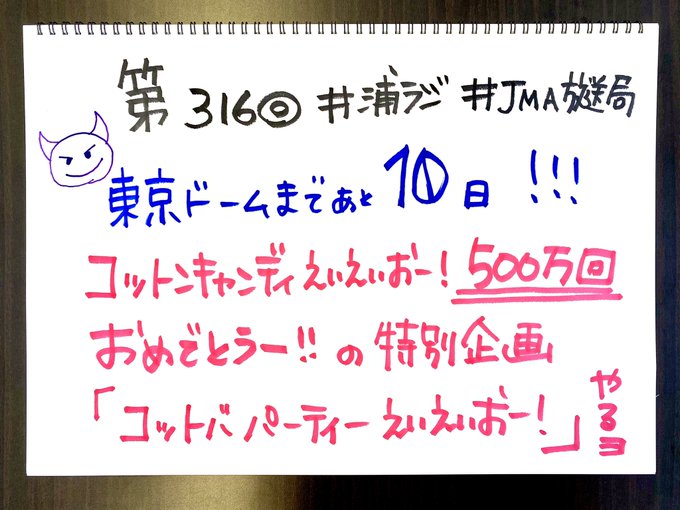 第316回 #浦ラジ #JMA放送局
東京ドームまであと10日!!!
コットンキャンディえいえいおー!500万回
おめでとうー!!の特別企画
「コットバパーティーえいえいおー!」やるヨ